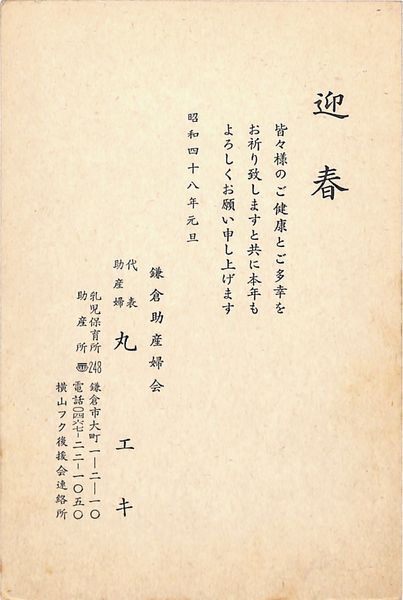 迎春
皆々様のご健康とご多幸を
お祈り致しますと共に本年も
よろしくお願い申し上げます
昭和四十八年元旦
鎌倉助産婦会
代表
助産婦
丸エキ
乳児保育所
助産所
〠248
鎌倉市大町一ー二ー一〇
電話〇四六七ー二二ー一〇五〇
横山フク後援会連絡所